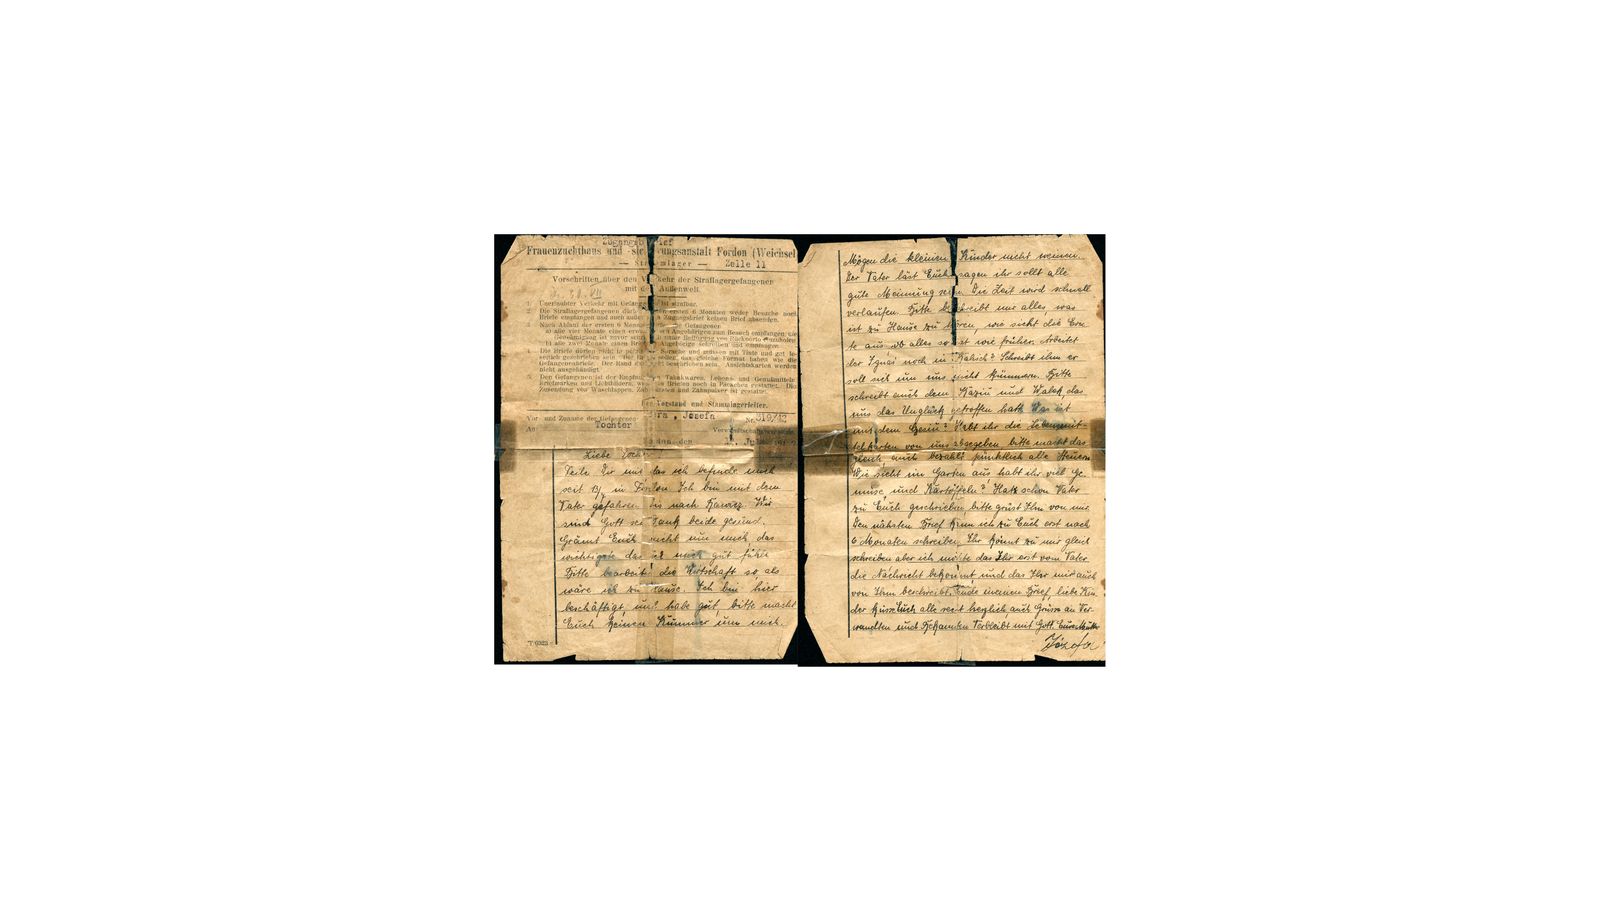 Zugangsbrief
Frauenzuchthaus und Sicherungsanstalt Fordon (Weichsel
— Stammlager — Zelle 11
Vorschriften über den Verkehr der Straflagergefangenen
mit der Außenwelt.
1. Unerlaubter Verkehr mit Gefangenen ist strafbar.
2. Die Straflagergefangenen dürfen in den ersten 6 Monaten weder Besuche noch
Briefe empfangen und auch außer dem Zugangsbrief keinen Brief absenden.
3. Nach Ablauf der ersten 6 Monate die Gefangenen
a) alle vier Monate einen Angehörigen zum Besuch empfangen, die
Genehmigung ist zuvor unter Beifügung von Rückporto einzuholen
b) alle zwei Monate einen Brief Angehörige schreiben und empfangen.
4. Die Briefe dürfen nicht in Sprache und müssen mit Tinte und gut le-
serlich geschrieben sein. Sie sollen das gleiche Format haben wie die
Gefangenenbriefe. Der Rand beschrieben sein. Ansichtskarten werden
nicht ausgehändigt.
5. Den Gefangenen ist der Empfang von Tabakwaren, Lebens- und Genußmitteln
Briefmarken und Lichtbildern, in Briefen noch in Päckchen gestattet. Die
Zusendung von Waschlappen, Zahnbürsten und Zahnpulver ist gestattet.
Der Vorstand und Stammlagerleiter.
Vor- und Zuname der Gefangenen: Józefa Nr. 319/42
An: Tochter
den Juli
Liebe Tochter
Teile Dir mit das ich befinde mich
seit 13/7 in Fordon Ich bin mit dem
Vater gefahren bis nach Rawicz. Wir
sind Gott sei Dank beide gesund.
Grämt Euch nicht um mich, das
wichtigste das ich mich gut fühle
Bitte bearbeit die Wirtschaft so als
wäre ich zu Hause. Ich bin hier
beschäftigt, und habe gut, bitte macht
Euch keinen Kummer um mich.
T 0323
Mögen die kleinen Kinder nicht weinen.
Der Vater läst Euch sagen ihr sollt alle
gute Meinnung sein. Die Zeit wird schnell
verlaufen. Bitte beschreibt mir alles, was
ist zu Hause zu hören, wie sieht die Ern-
te aus, ob alles so ist wie früher. Arbeitet
der Ignas noch in Kalisch? Schreibt ihm er
soll sich um uns nicht kümmern. Bitte
schreibt auch dem Kazin und Walek das
uns das Unglück getroffen hatt. Was ist
mit dem Geniu? Habt ihr die Lebensmit-
telkarten von uns abgegeben bitte macht das
gleich, auch bezahlt pünktlich alle Steuern
Wie sieht im Garten aus, habt ihr viel Ge-
müse, und Kartöffeln? Hatt schon Vater
zu Euch geschrieben, bitte grüst Ihm von mir
Den nächsten Brief kann ich zu Euch erst nach
6 Monaten schreiben. Ihr könnt zu mir gleich
schreiben aber ich möchte das Ihr erst vom Vater
die Nachricht bekommt, und das Ihr mir auch
von Ihm beschreibt. Ende meinen Brief, liebe Kin-
der küsse Euch alle recht herzlich, auch Grüsse an Ver-
wandten und Bekannten Verbleibt mit Gott. Eure Mutter
Józefa